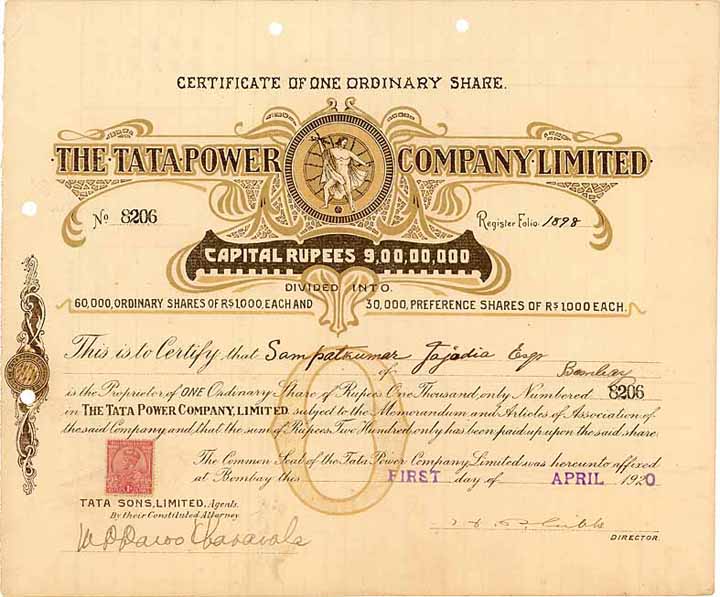 CERTIFICATE OF ONE ORDINARY SHARE.
THE·TATA·POWER COMPANY·LIMITED·
No 8206 Register Folio. 1898
CAPITAL RUPEES 9,00,00,000
DIVIDED INTO
60,000, ORDINARY SHARES OF RS 1,000, EACH AND 30,000, PREFERENCE SHARES OF RS 1,000 EACH.
This is to Certify, that Sampatkumar Jajodia Esqr
of Bombay
is the Proprietor, of ONE Ordinary Share of Rupees One Thousand, only Numbered 8206
in THE TATA POWER COMPANY, LIMITED subject to the Memorandum and Articles of Association of
the said Company and that the sum of Rupees Two Hundred, only has been paid up upon the said share.
The Common Seal of the Tata Power Company, Limited was hereunto affixed
at Bombay this FIRST day of APRIL 1920
TATA SONS, LIMITED, Agents.
By their Constituted Attorney
DIRECTOR